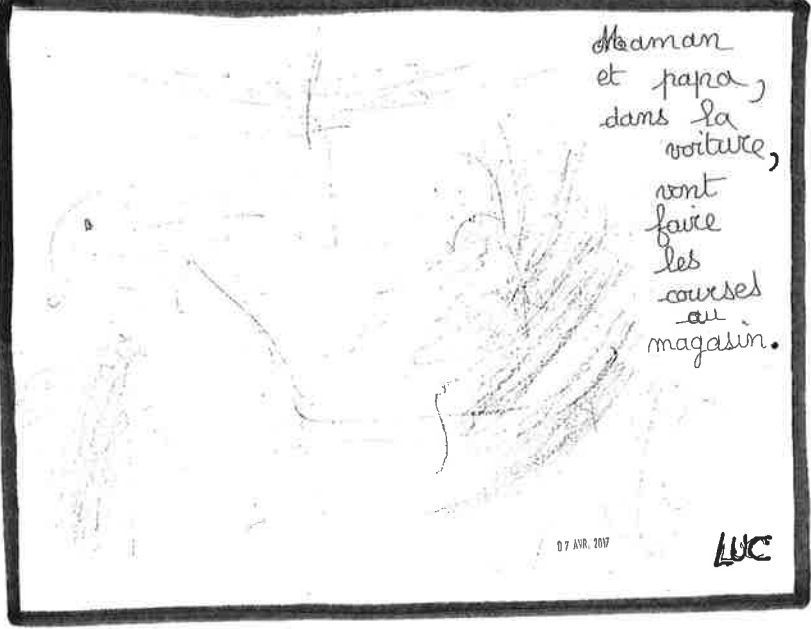 Maman
et papa,
dans la
voiture,
vont
faire
les
courses
au
magasin.
07 AVR. 2017
LUC